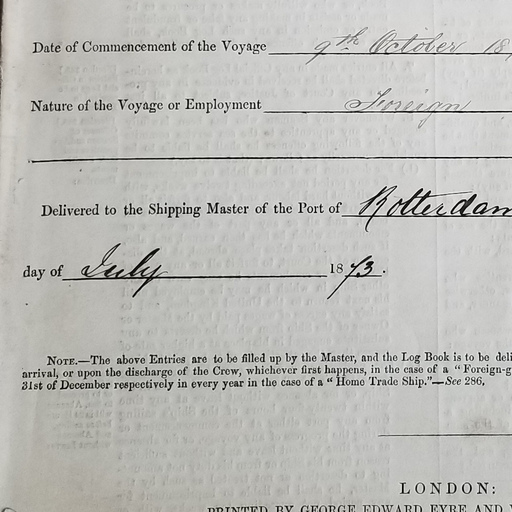 Date of Commencement of the Voyage 9th October 18
Nature of the Voyage or Employment Foreign
Delivered to the Shipping Master of the Port of Rotterdam
day of July 1873.
NOTE.—The above Entries are to be filled up by the Master, and the Log Book is to be deli
arrival, or upon the discharge of the Crew, whichever first happens, in the case of a "Foreign-g
31st of December respectively in every year in the case of a "Home Trade Ship."—See 286.
LONDON:
PRINTED BY GEORGE EDWARD EYRE AND